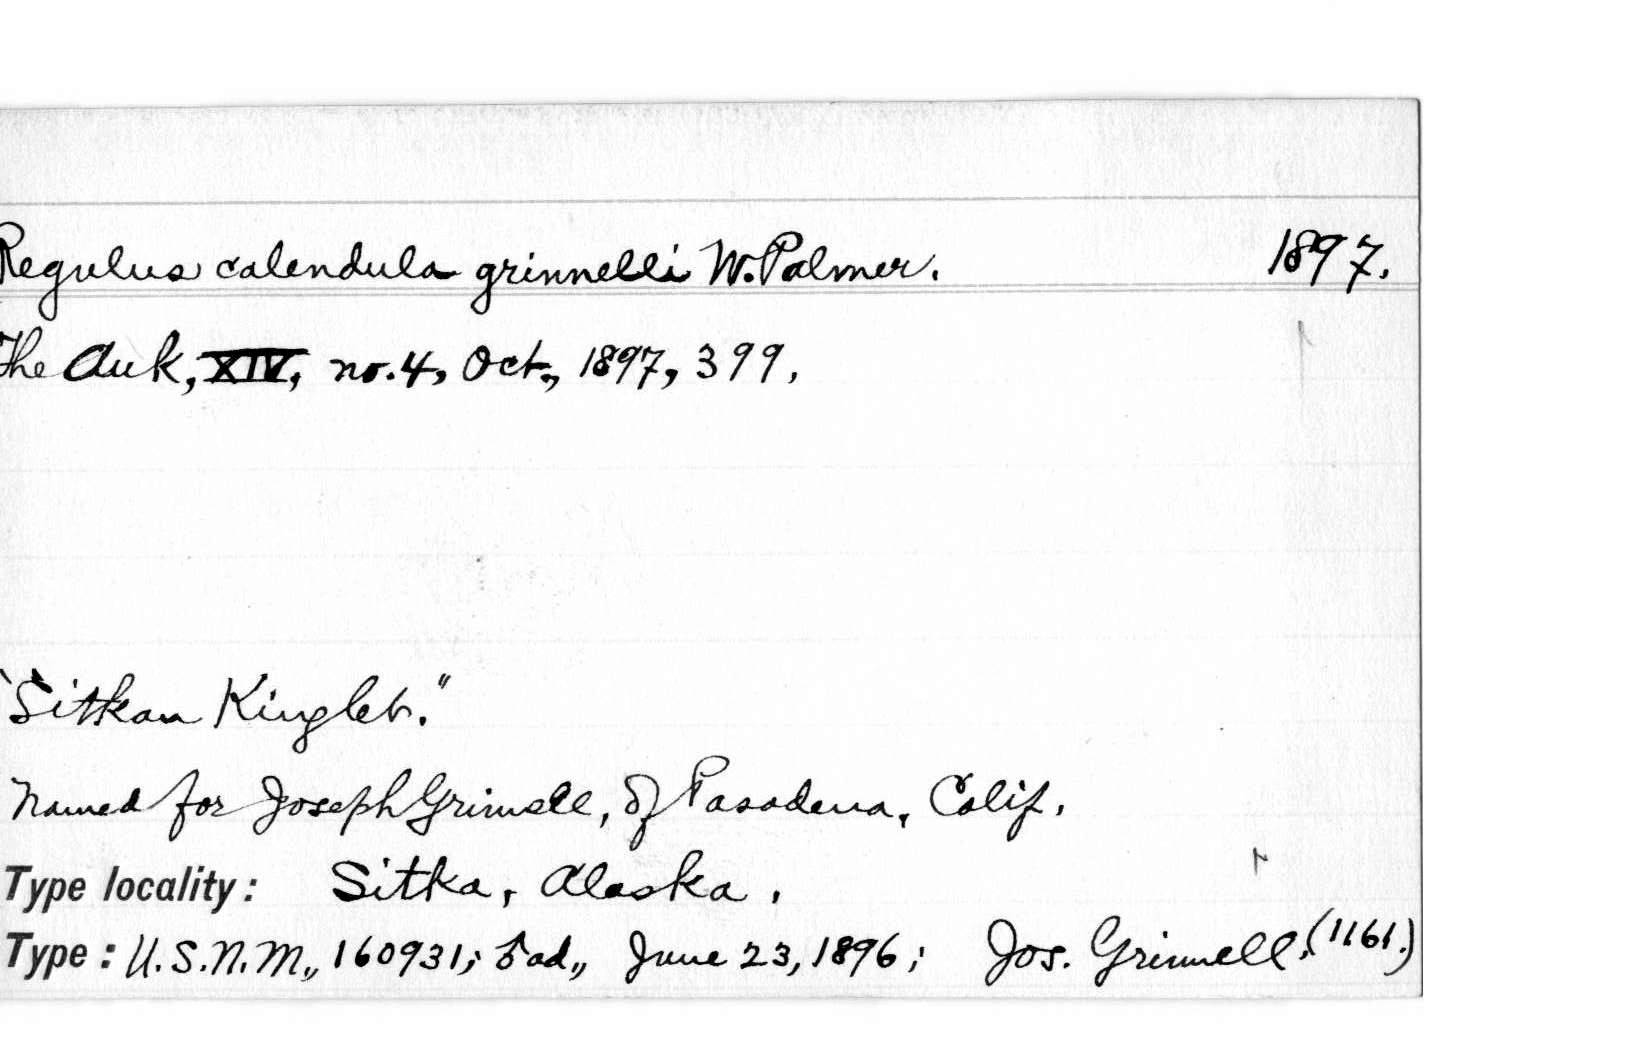 Regulus calendula grinnelli W. Palmer. 1897.
The Auk, XIV, no. 4, Oct., 1897, 399.
"Sitkan Kinglet."
Named for Joseph Grinnell, of Pasadena, Calif.
Type locality: Sitka, Alaska.
Type: U.S.N.M., 160931; ad., June 23, 1896; Jos. Grinnell, (1161.)